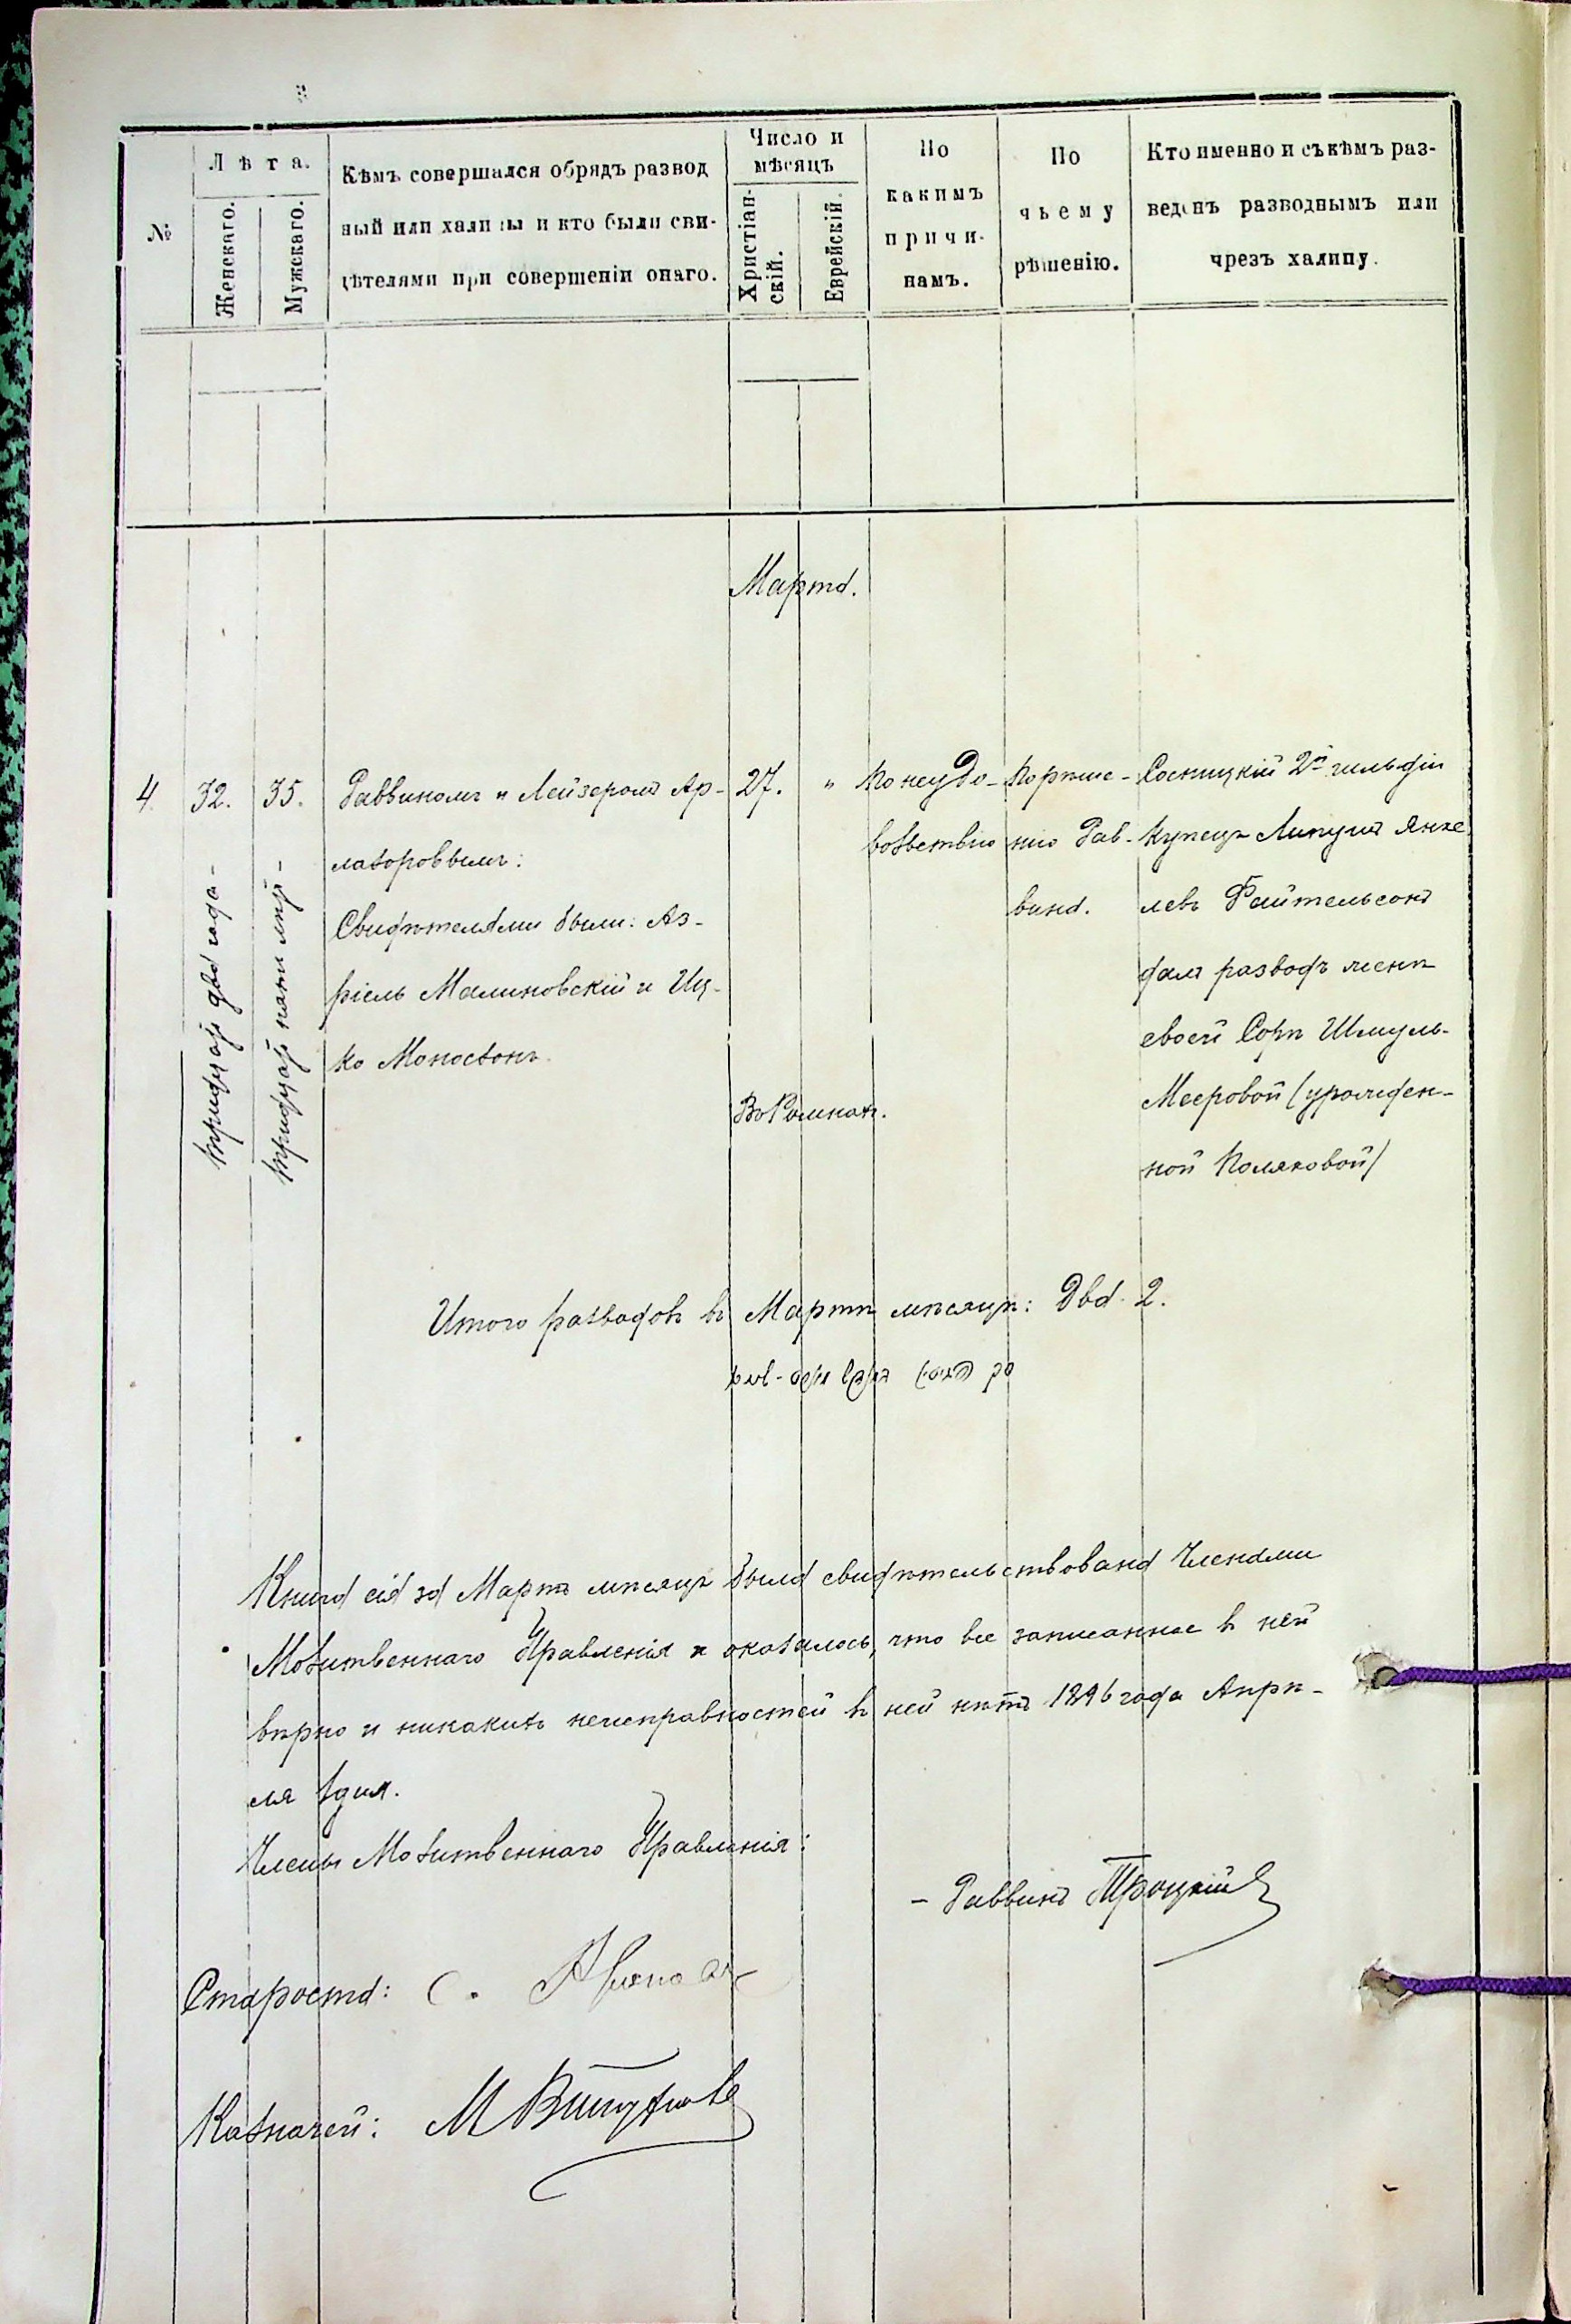 №
Лѣта.
Женскаго.
Мужскаго.
Кѣмъ совершался обрядъ развод
ный или халицы и кто были сви-
дѣтелями при совершеніи онаго.
Число и
мѣсяцъ
Христіан-
скій.
Еврейскій.
По
какимъ
причи-
намъ.
По
чьему
рѣшенію.
Кто именно и съ кѣмъ раз-
веденъ разводнымъ или
чрезъ халицу.
Марта.
4
32.
тридцать два года-
35.
тридцать пять лѣтъ-
Раввиномъ и Лейзеромъ Ар-
лазоровымъ:
Свидѣтелями были: Аз-
ріель Малиновскій и Иц-
ко Монастонъ.
27.
"
Въ Ромнахъ.
По неудо-
вольствію
По рѣше-
нію Рав-
вина.
Сосницкій 2й гильдіи
купецъ Липушъ Янке
левъ Файтельсонъ
далъ разводъ женѣ
своей Сорѣ Шмуль-
Мееровой (урожден-
ной Поляковой)
Итого разводовъ въ Мартѣ мѣсяцѣ: Два 2.
Книга сія за Мартъ мѣсяцъ была свидѣтельствована Членами
Молитвеннаго Правленія и оказалось, что все записанное въ ней
вѣрно и никакихъ неисправностей въ ней нѣтъ 1896 года Апрѣ-
ля 1 дня.
Члены Молитвеннаго Правленія:
- Раввинъ Троцкій
Староста: С.
Казначей: М